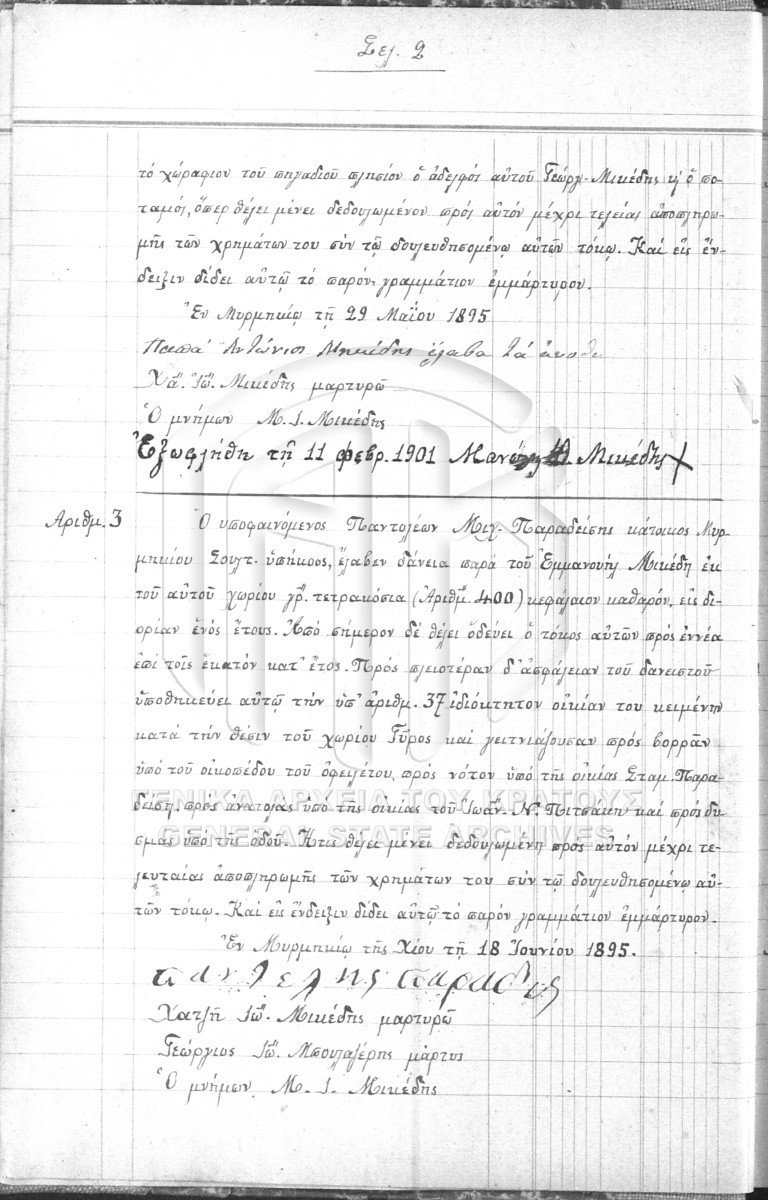 Σελ. 2
τὸ χώραφιον τοῦ πηγαδιοῦ πλησίον ὁ ἀδελφός αὐτοῦ Γεώργ. Μικέδης κ' ὁ πο-
ταμός, ὅπερ θέλει μένει δεδουλωμένον πρός αὐτόν μέχρι τελείας ἀποπληρω-
μῆς τῶν χρημάτων του σύν τῷ δουλευθησομένῳ αὐτῶν τόκῳ. Καί εἰς ἔν-
δειξιν δίδει αὐτῷ τό παρόν γραμμάτιον ἐμμάρτυρον.
Ἐν Μυρμηκίῳ τῇ 29 Μαΐου 1895
Παπᾶ Αντώνιος Μηκέδης έλαβα τά άνοθε
Χ΄΄α. Ἰω΄΄. Μικέδης μαρτυρῶ
Ὁ μνήμων Μ. Ι. Μικέδης
Ἐξωφλήθη τῇ 11 φεβρ. 1901 Μικέδης
Αριθμ. 3
Ὁ ὑποφαινόμενος Παντολέων Μιχ. Παραδείσης κάτοικος Μυρ-
μηκίου Σουλτ. ὑπήκοος, ἔλαβεν δάνεια παρά τοῦ Ἐμμανουήλ Μικέδη ἐκ
τοῦ αὐτοῦ χωρίου γρ΄΄. τετρακόσια (Ἀριθμ΄΄. 400) κεφάλαιον καθαρόν, εἰς δι-
ορίαν ἑνός ἔτους. Ἀπό σήμερον δέ θέλει ὁδεύει ὁ τόκος αὐτῶν πρός ἐννέα
ἐπί τοῖς ἑκατόν κατ' ἔτος. Πρός πλειοτέραν δ' ἀσφάλειαν τοῦ δανειστοῦ
ὑποθηκεύει αὐτῷ τήν ὑπ' ἀριθμ. 37 ἰδιόκτητον οἰκίαν του κειμένην
κατά τήν θέσιν τοῦ χωρίου Γῦρος καί γειτνιάζουσαν πρός βορρᾶν
ὑπό τοῦ οἰκοπέδου τοῦ ὀφειλέτου, πρός νότον ὑπό τῆς οἰκίας Σταμ. Παρα-
δείση, πρός ἀνατολάς ὑπό τῆς οἰκίας τοῦ Ἰωάν. Ν. Πιτσάκη καί πρός δυ-
σμάς ὑπό τῆς ὁδοῦ. Ἥτις θέλει μένει δεδουλωμένη πρός αὐτόν μέχρι τε-
λευταίας ἀποπληρωμῆς τῶν χρημάτων του σύν τῷ δουλευθησομένῳ αὐ-
τῶν τόκῳ. Καί εἰς ἔνδειξιν δίδει αὐτῷ τό παρόν γραμμάτιον ἐμμάρτυρον.
Ἐν Μυρμηκίῳ τῆς Χίου τῇ 18 Ἰουνίου 1895.
παντελης
Χατζῆ Ἰω΄΄. Μικέδης μαρτυρῶ
Γεώργιος Ἰω΄΄. Μπουλαξέρης μάρτυς
Ὁ μνήμων Μ. Ι. Μικέδης
ΓΕΝΙΚΑ ΑΡΧΕΙΑ ΤΟΥ ΚΡΑΤΟΥΣ
GENERAL STATE ARCHIVES